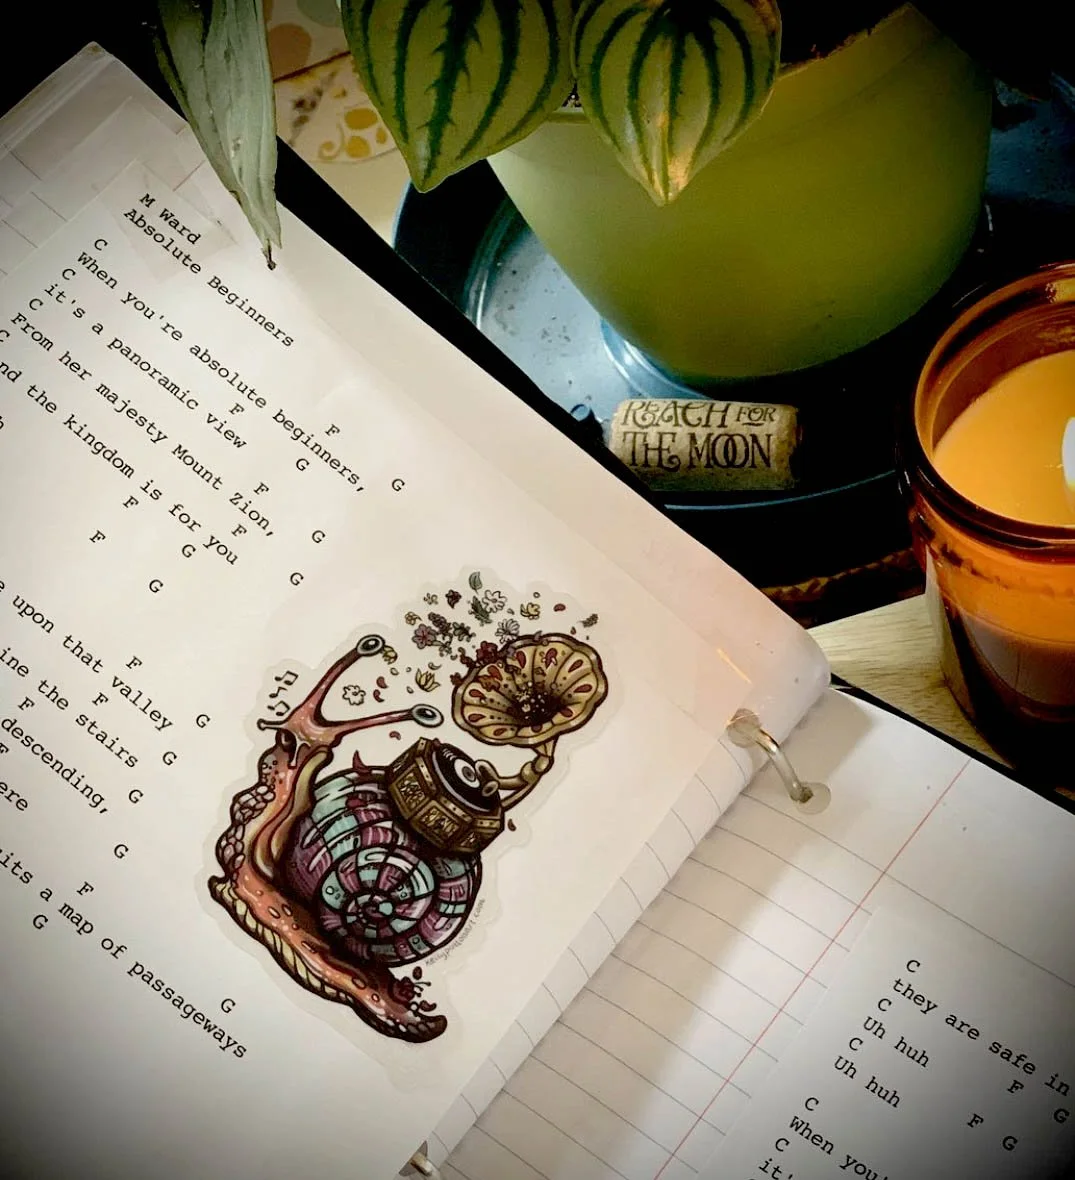 M Ward
Absolute Beginners
C F G
When you're absolute beginners,
C F G
it's a panoramic view
C F G
From her majesty Mount Zion,
C F G
the kingdom is for you
F G
F G
F G
upon that valley
F G
the stairs
F G
descending,
F G
F G
a map of passageways
G
REACH FOR
THE MOON
kellypietrasart.com
C
they are safe in
C F G
Uh huh
C F G
Uh huh
C
When you'
C
it'